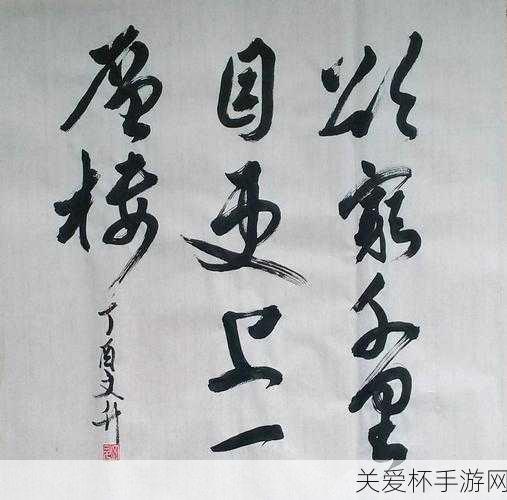 欲穷千里
目更上一
层楼
丁酉文升
关爱杯手游网